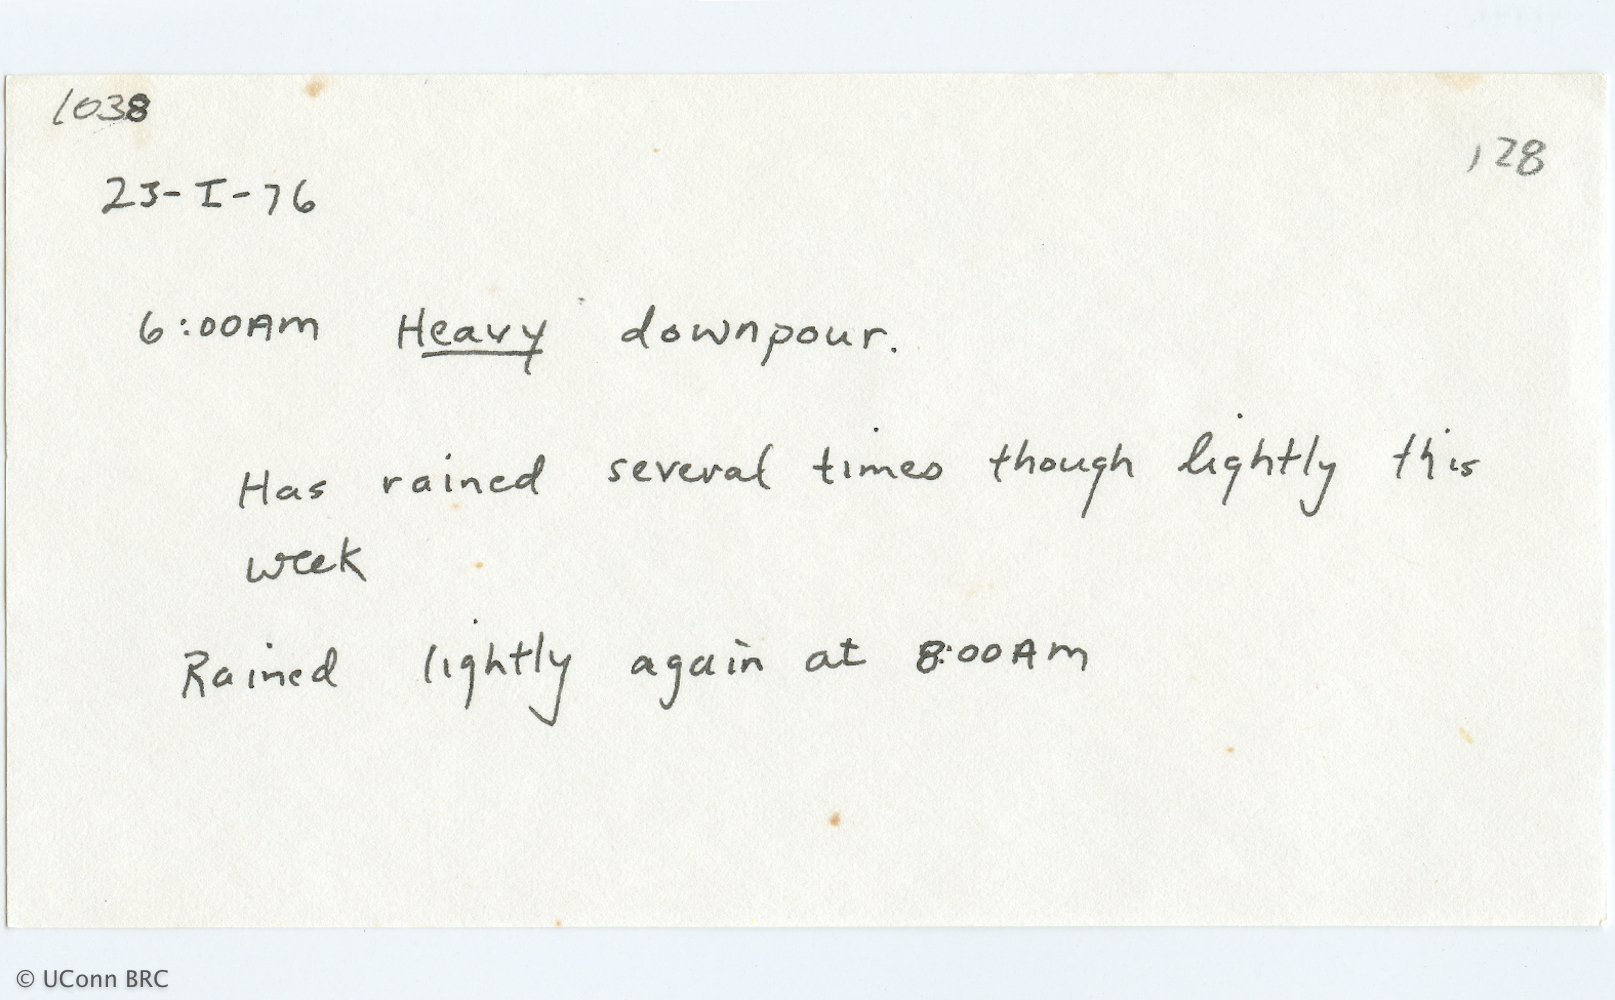 1038
128
23-I-76
6:00AM Heavy downpour.
Has rained several times though lightly this
week
Rained lightly again at 8:00AM
© UConn BRC